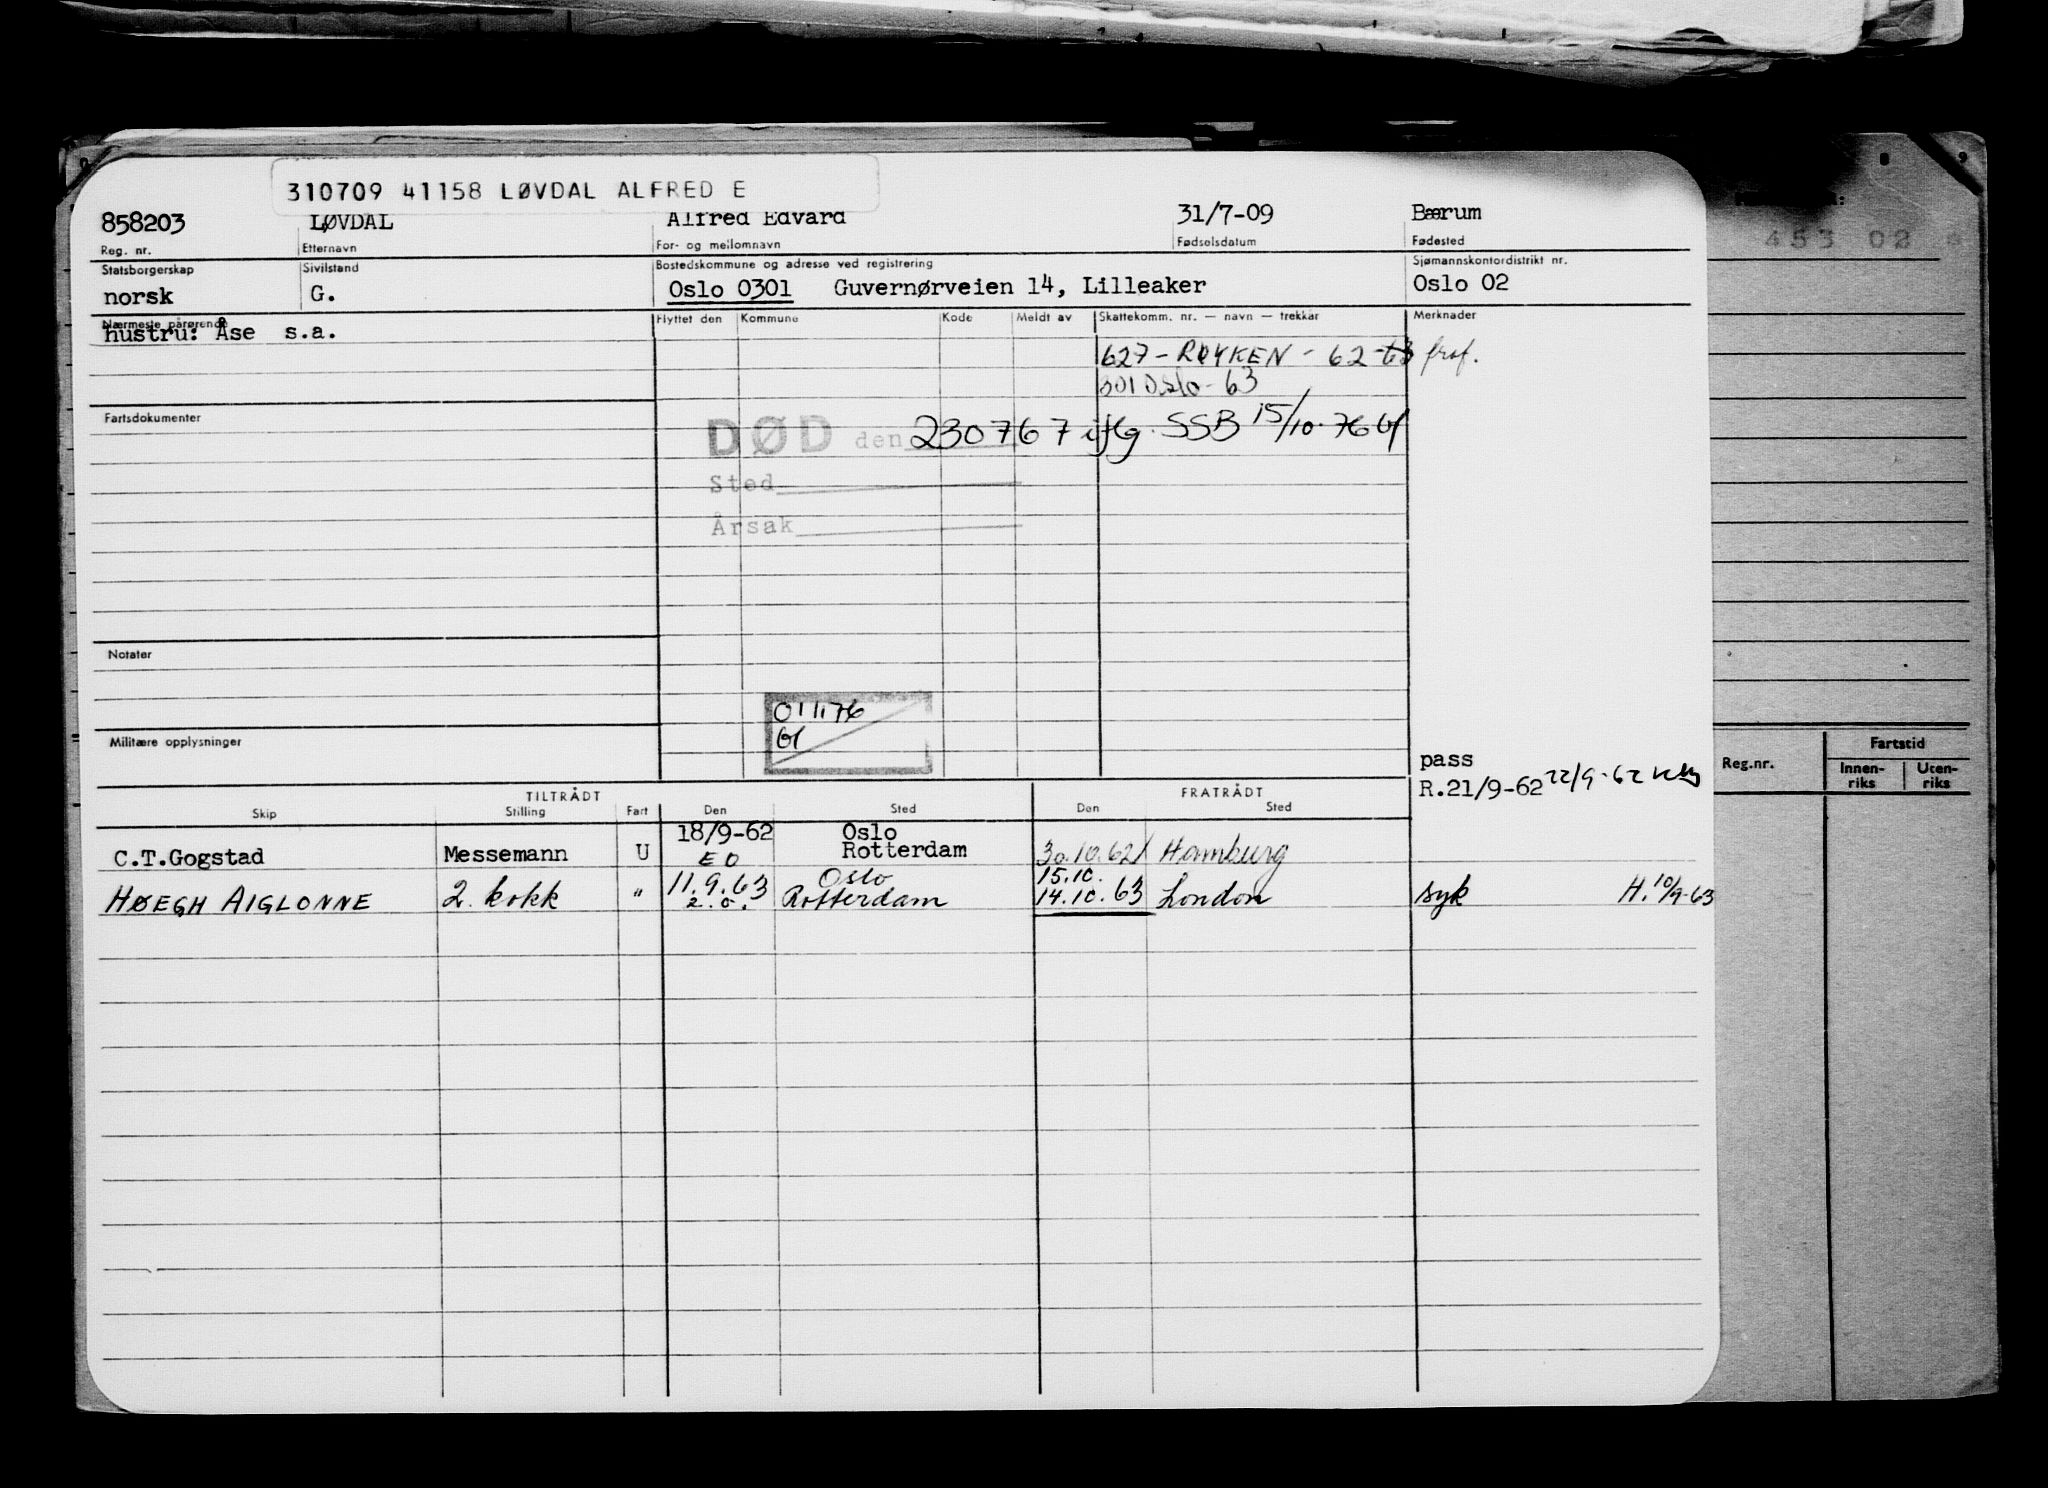 310709 41158 LØVDAL ALFRED E
858203 LØVDAL Alfred Edvard 31/7-09 Bærum
Reg. nr. Etternavn For- og mellomnavn Fødselsdatum Fødested
Statsborgerskap Sivilstand Bostedskommune og adresse ved registrering Sjømannskontordistrikt nr.
norsk G. Oslo 0301 Guvernørveien 14, Lilleaker Oslo 02
453 02
Nærmeste pårørende Flyttet den Kommune Kode Meldt av Skattekomm. nr. — navn — trekkår Merknader
hustru: Åse s.a.
627 - RØYKEN - 62-63 fraf.
301 Oslo - 63
Fartsdokumenter
DØD den 230767 iflg. SSB 15/10-76
Sted
Årsak
Notater
011176
Militære opplysninger
pass
R.21/9-62 22/9-62
Reg.nr. Fartstid
Innen-riks Uten-riks
TILTRÅDT FRATRÅDT
Skip Stilling Fart Den Sted Den Sted
18/9-62 Oslo
C.T.Gogstad Messemann U EO Rotterdam 30.10.62 Hamburg
11.9.63 Oslo 15.10.
HØEGH AIGLONNE 2. kokk " 2.0. Rotterdam 14.10.63 London syk H.10/9-63